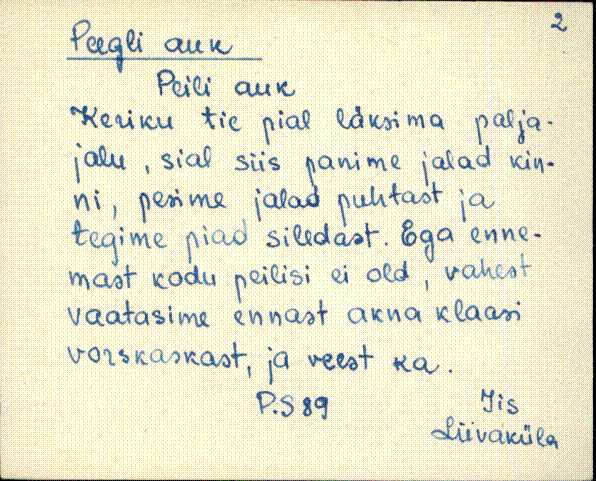 2
Peegli auk
Peili auk
Keriku tie pial läksima palja-
jalu, sial siis panime jalad kin-
ni, pesime jalad puhtast ja
tegime piad siledast. Ega enne-
mast kodu peilisi ei old, vahest
vaatasime ennast akna klaasi
vorskaskast, ja veest ka.
P.S 89
Jis
Liivaküla